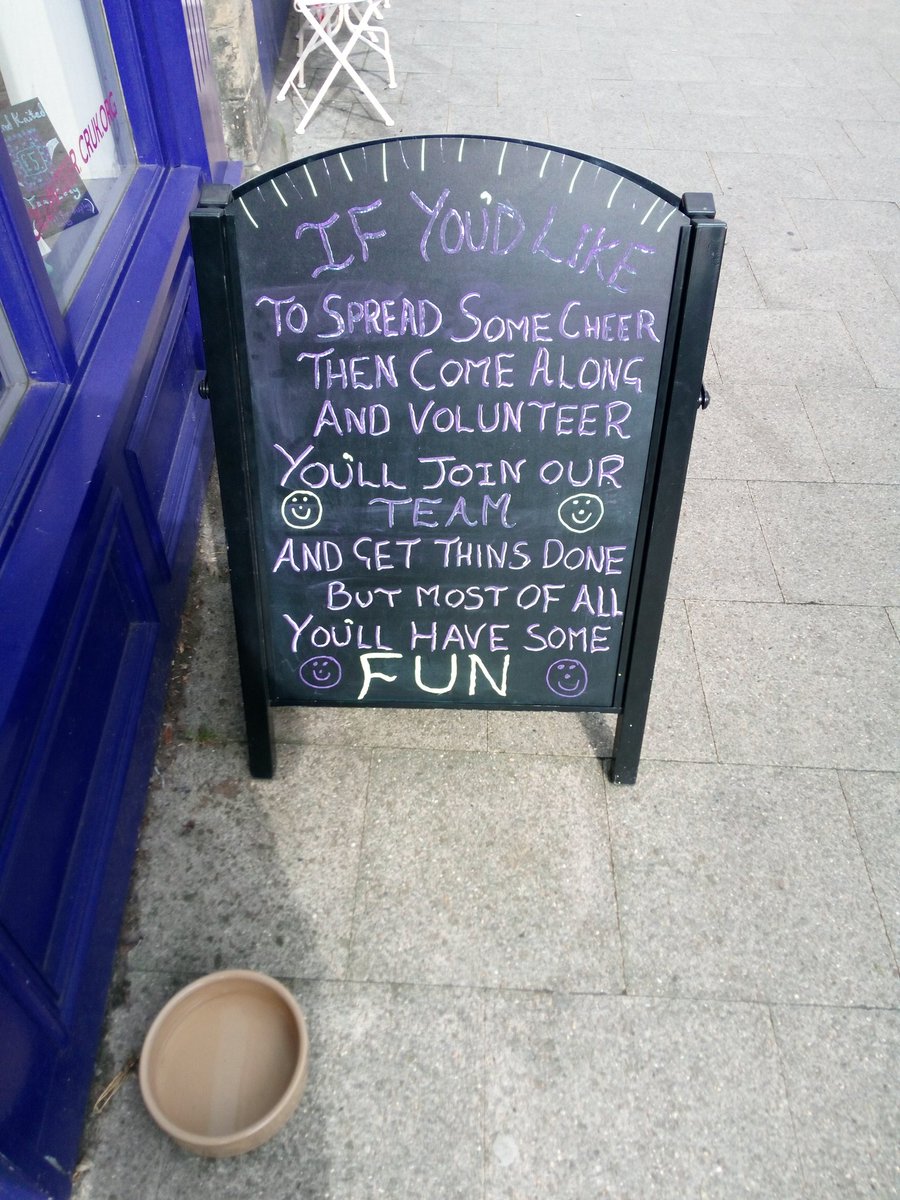 IF YOU'D LIKE
TO SPREAD SOME CHEER
THEN COME ALONG
AND VOLUNTEER
YOU'LL JOIN OUR
TEAM
AND GET THINS DONE
BUT MOST OF ALL
YOU'LL HAVE SOME
FUN
CRUK.ORG